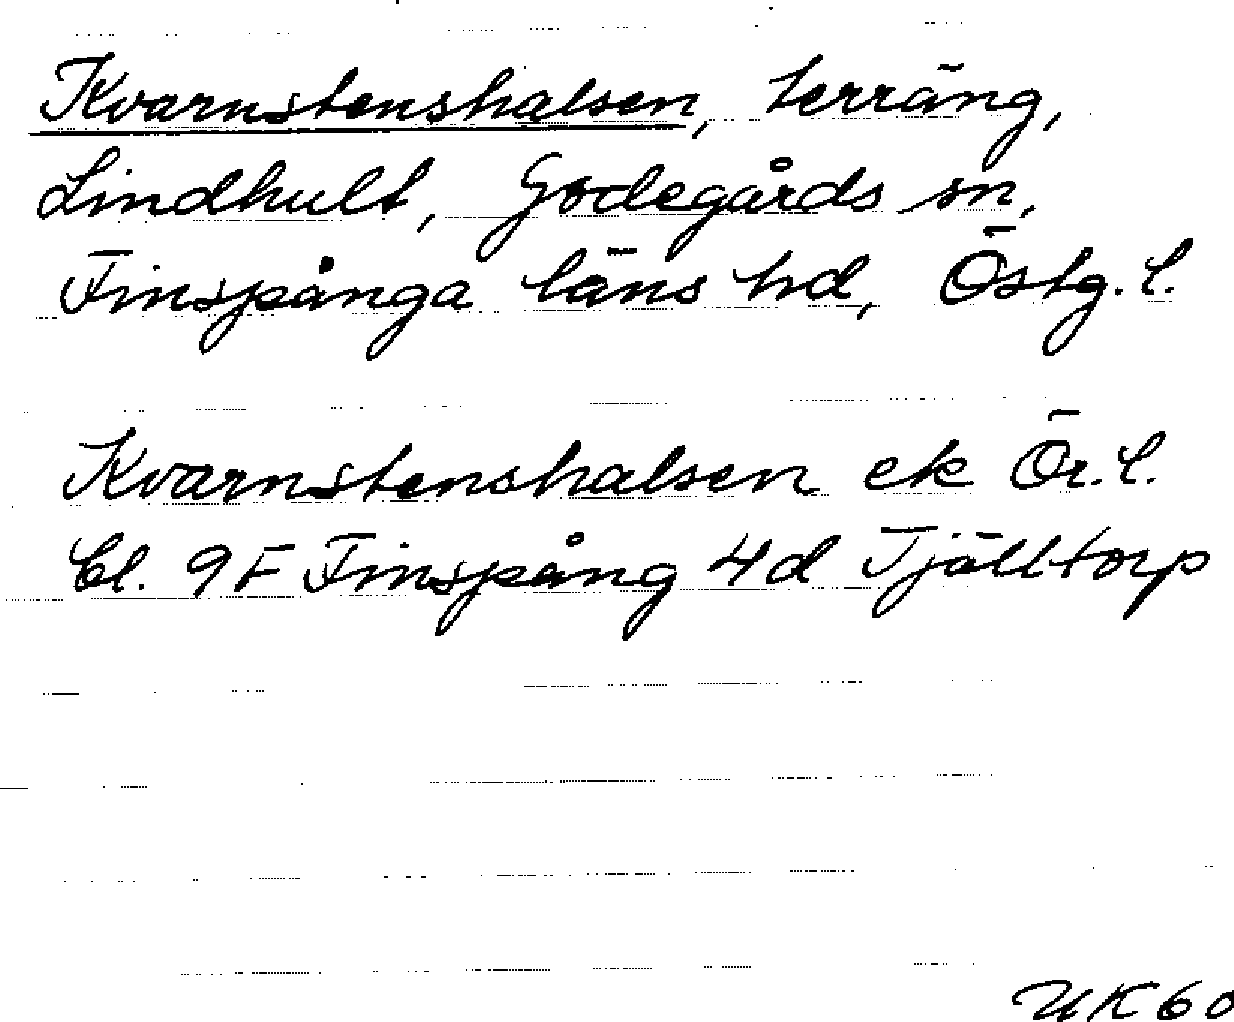 Kvarnstenshalsen, terräng,
Lindhult, Godegårds sn,
Finspånga läns hd, Östg. l.
Kvarnstenshalsen ek Ör. l.
bl. 9F Finspång 4d Tjälltorp
UK60